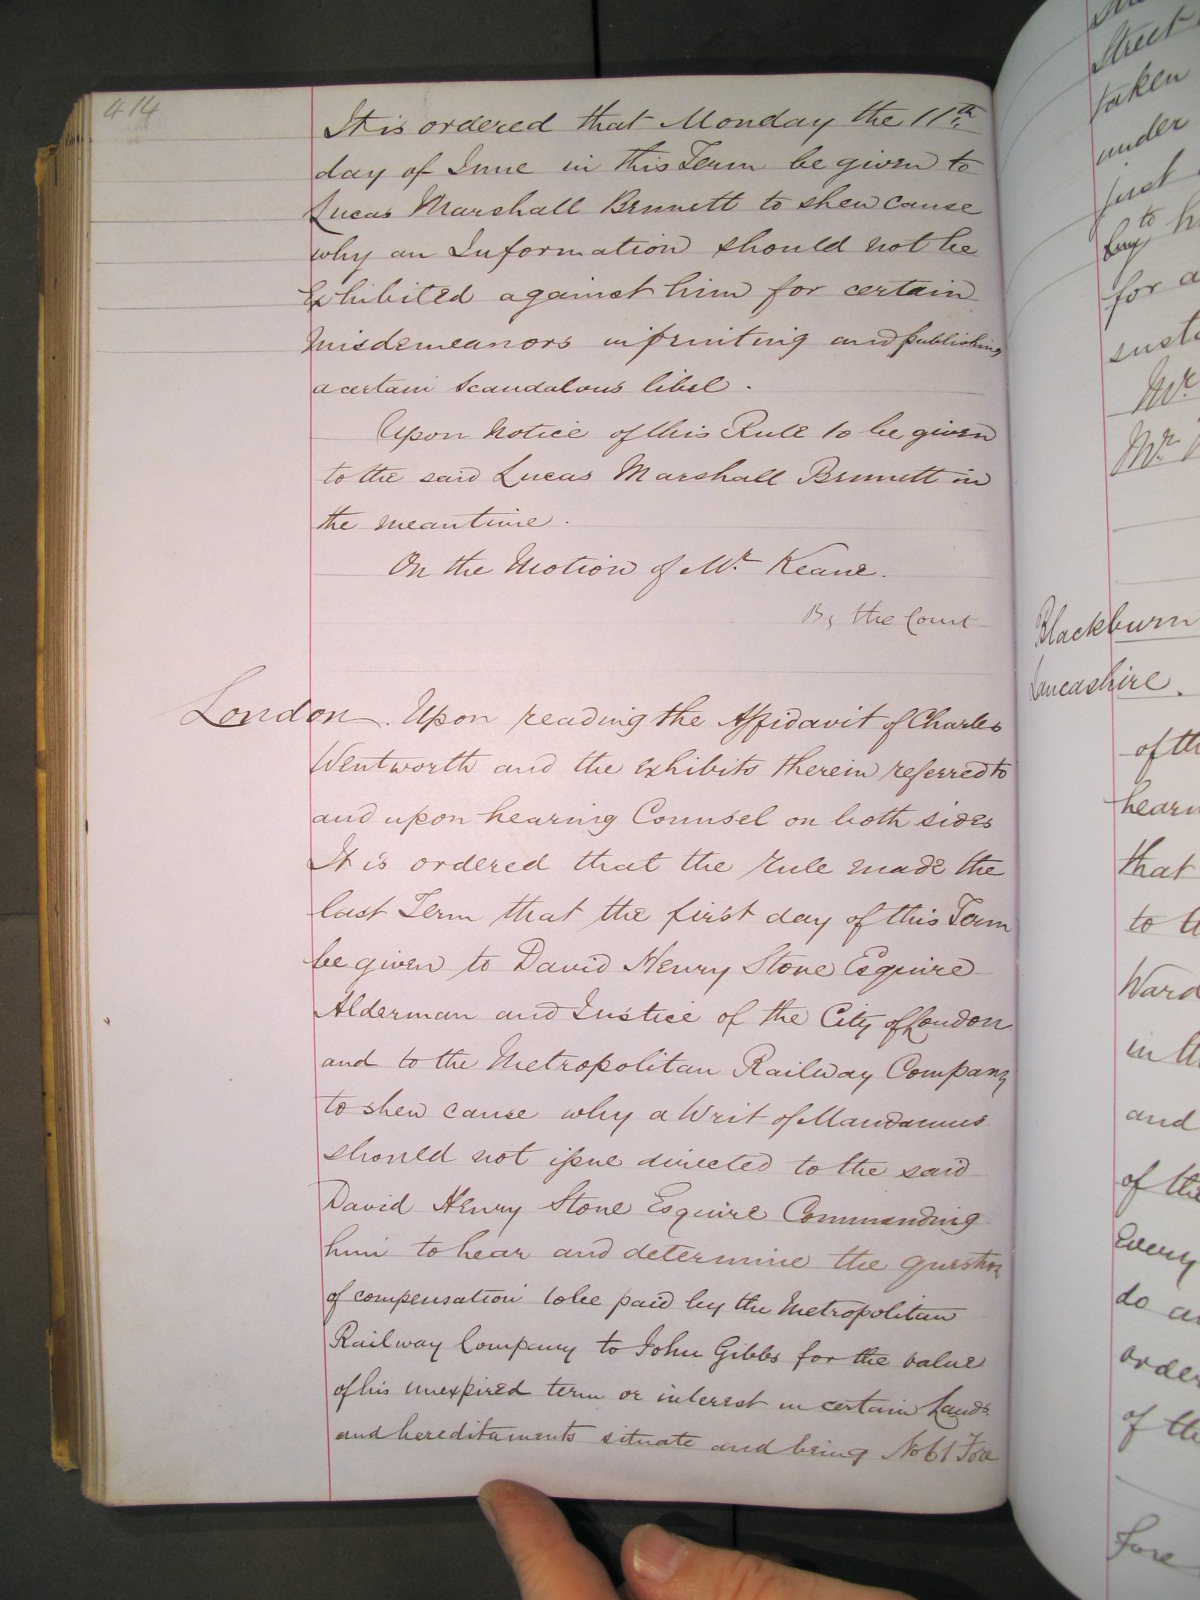 414
It is ordered that Monday the 11th
day of June in this Term be given to
Lucas Marshall Bennett to shew cause
why an Information should not be
Exhibited against him for certain
Misdemeanors in printing and publishing
a certain Scandalous libel.
Upon Notice of this Rule to be given
to the said Lucas Marshall Bennett in
the meantime.
On the Motion of Mr. Keane.
By the Court
London. Upon reading the Affidavit of Charles
Wentworth and the exhibits therein referred to
and upon hearing Counsel on both sides
It is ordered that the rule made the
last Term that the first day of this Term
be given to David Henry Stone Esquire
Alderman and Justice of the City of London
and to the Metropolitan Railway Company
to shew cause why a Writ of Mandamus
should not issue directed to the said
David Henry Stone Esquire Commanding
him to hear and determine the question
of compensation to be paid by the Metropolitan
Railway Company to John Gibbs for the value
of his unexpired term or interest in certain Lands
and hereditaments situate and being No 61 Fore
Street
taken
under
just
to
for a
Mr
Mr
Blackburn
Lancashire.
of th
hearn
that
to
Ward
in th
and
of the
Every
do an
order
of th
fore